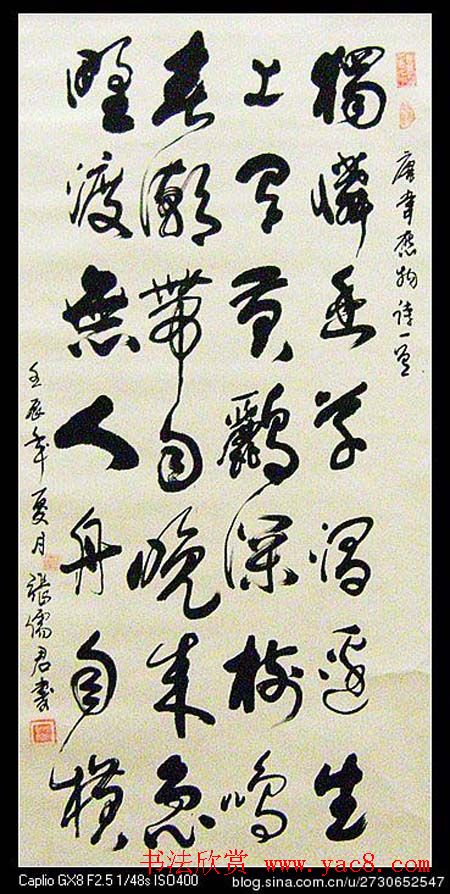 唐韋應物詩一首
獨憐幽草澗邊生
上有黄鸝深樹鳴
春潮帶雨晚來急
野渡無人舟自橫
壬辰年夏月 張儒君書
书法欣赏 www.yac8.com
Caplio GX8 F2.5 1/48s ISO400
blog.sina.com.cn/u/2730652547